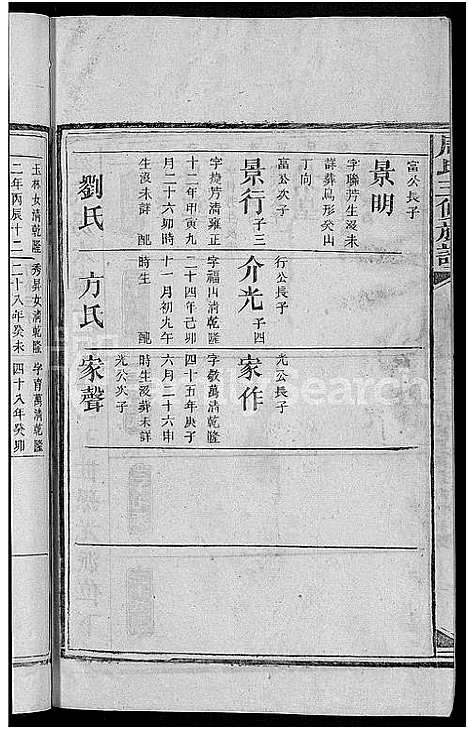 周氏三修族譜
富公長子
景明
字聯芳生沒未
詳葬鳥形癸山
丁向
富公次子
景行 子三
字捷芳清雍正
十二年甲寅九
月二十六卯時
生沒未詳 配
劉氏
玉林女清乾隆
二年丙辰十二
行公長子
介光 子四
字福山清乾隆
二十四年己卯
十一月初九午
時生 配
方氏
秀昇女清乾隆
二十八年癸未
光公長子
家作
字敦萬清乾隆
四十五年庚子
六月二十六申
時生沒葬未詳
光公次子
家聲
字育萬清乾隆
四十八年癸卯